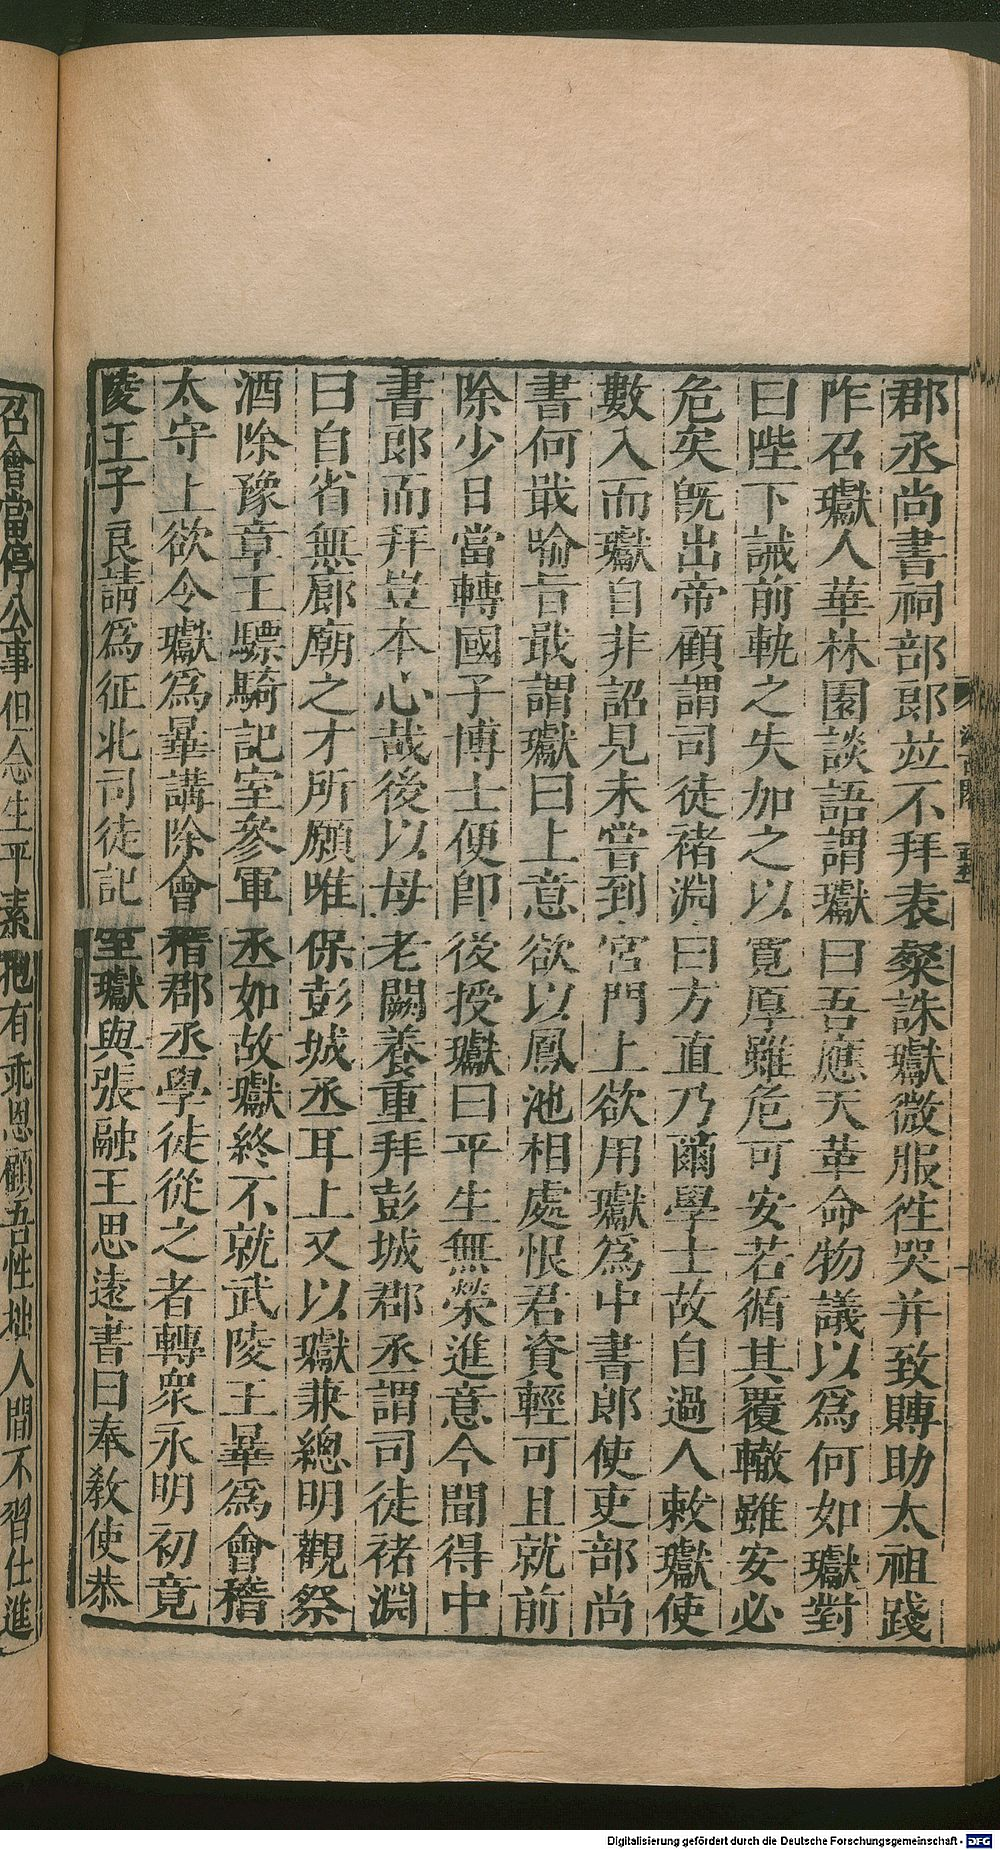 郡丞尚書祠部郎並不拜袁粲誅瓛微服往哭并致賻助太祖踐
阼召瓛入華林園談語謂瓛曰吾應天革命物議以爲何如瓛對
曰陛下誡前軌之失加之以寬厚雖危可安若循其覆轍雖安必
危矣旣出帝顧謂司徒褚淵曰方直乃爾學士故自過人敕瓛使
數入而瓛自非詔見未嘗到宮門上欲用瓛爲中書郎使吏部尚
書何戢喻旨戢謂瓛曰上意欲以鳳池相處恨君資輕可且就前
除少日當轉國子博士便卽後授瓛曰平生無榮進意今聞得中
書郎而拜豈本心哉後以母老闕養重拜彭城郡丞謂司徒褚淵
曰自省無廊廟之才所願唯保彭城丞耳上又以瓛兼總明觀祭
酒除豫章王驃騎記室參軍丞如故瓛終不就武陵王曅爲會稽
太守上欲令瓛爲曅講除會稽郡丞學徒從之者轉衆永明初竟
陵王子良請爲征北司徒記室瓛與張融王思遠書曰奉敎使恭
召會當停公事但念生平素抱有乖恩顧吾性拙人間不習仕進
Digitalisierung gefördert durch die Deutsche Forschungsgemeinschaft - DFG